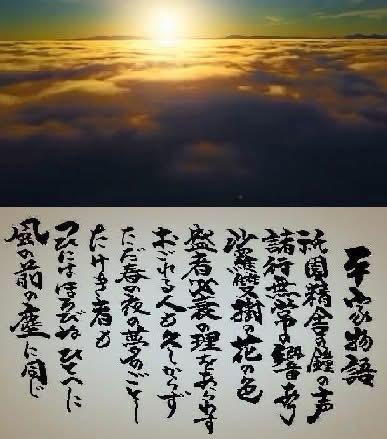 平家物語
祇園精舎の鐘の声
諸行無常の響あり
沙羅雙樹の花の色
盛者必衰の理をあらわす
おごれる人も久しからず
ただ春の夜の夢のごとし
たけき者も
つひにはほろびぬひとへに
風の前の塵に同じ